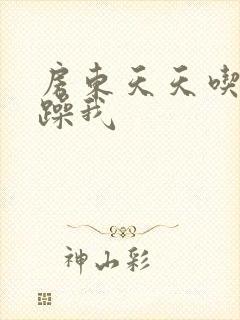 房东天天喫
躁我
神山彩